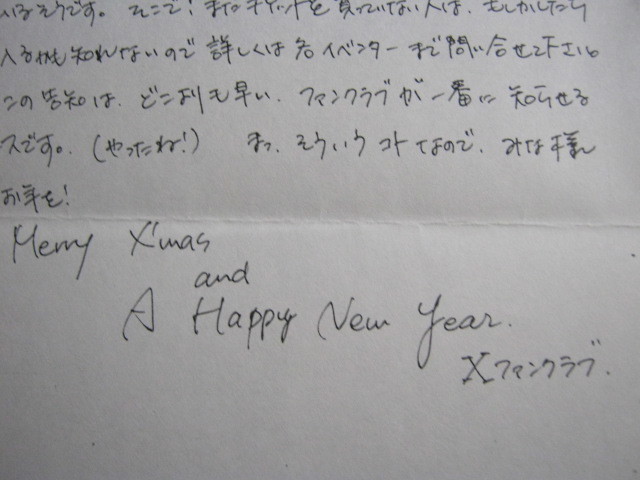 いるそうです。 そこで! まだチケットを買っていない人は、もしかしたら
入るかも知れないので 詳しくは各イベンターまで問い合せて下さい。
この告知は、どこよりも早い、ファンクラブが一番に知らせる
スです。(やったね!) まっ、そういうコトなので、みな様ん
お年を!
Merry X'mas
and
A Happy New Year.
Xファンクラブ.